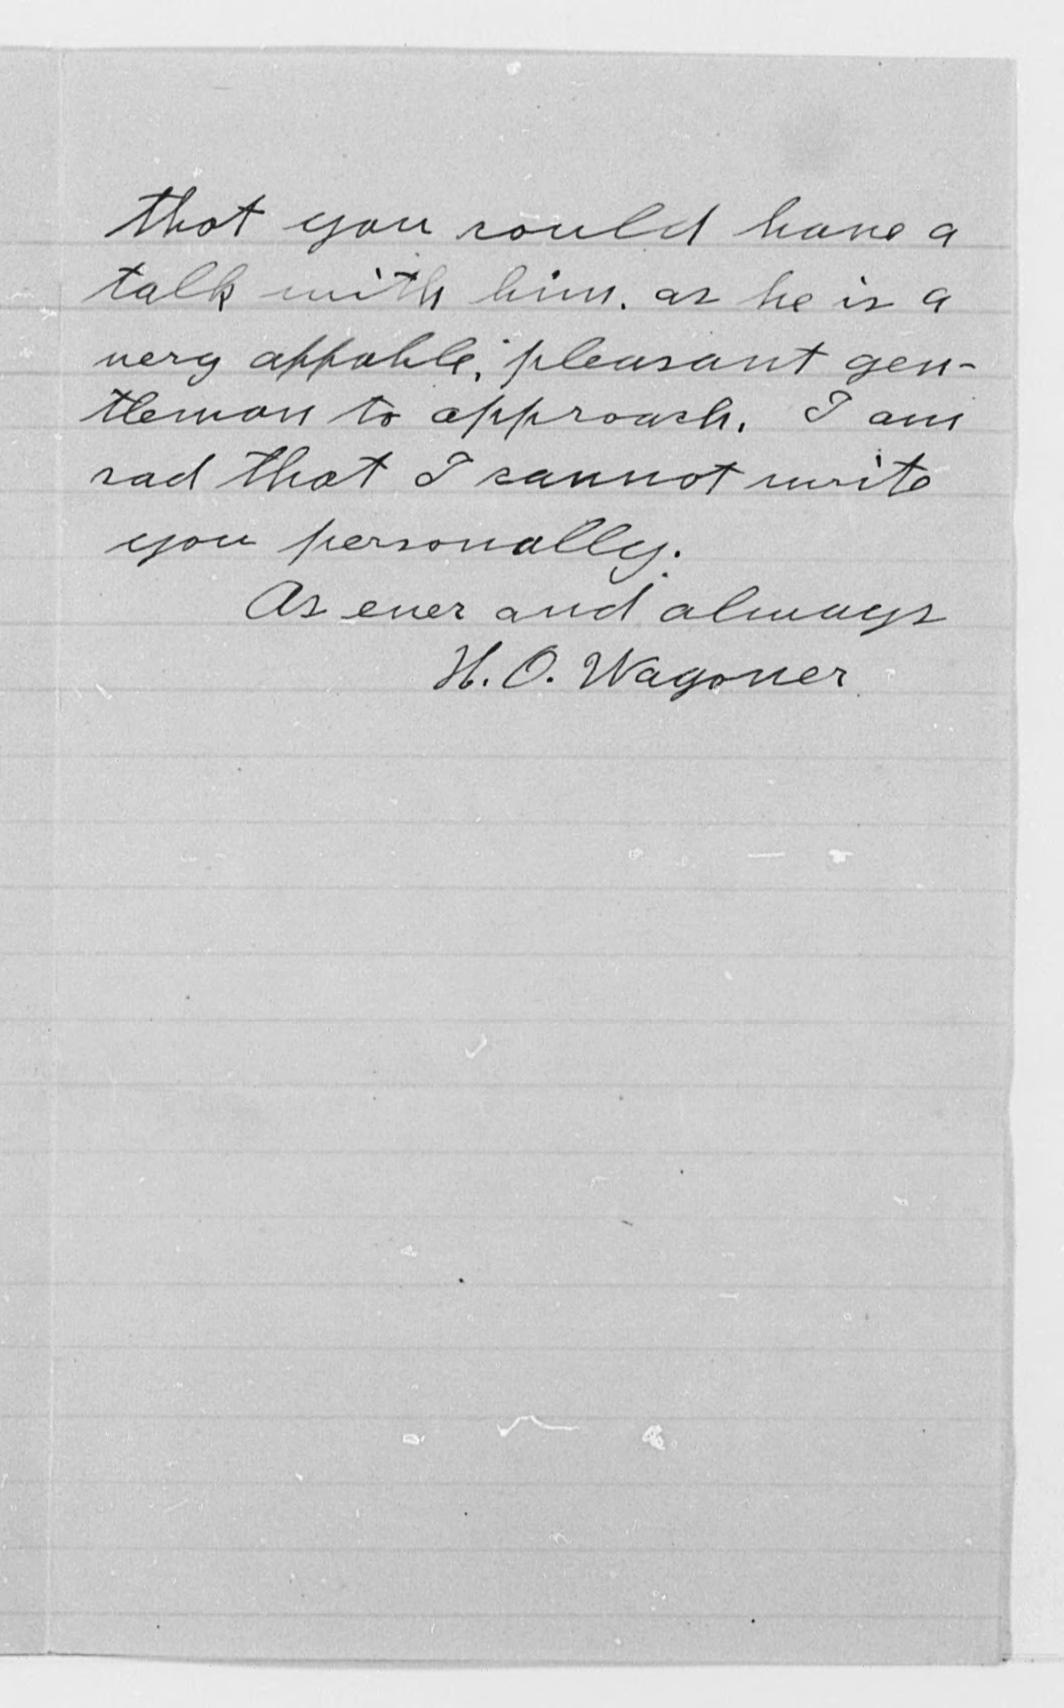 that you could have a
talk with him. as he is a
very affable, pleasant gen-
tleman to approach. I am
sad that I cannot write
you personally.
As ever and always
H. O. Wagoner